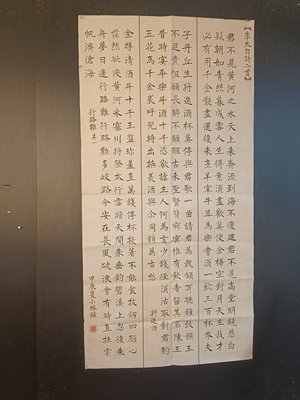 【李太白詩二首】
君不見黃河之水天上來奔流到海不復迴君不見高堂明鏡悲白
髮朝如青絲暮成雪人生得意須盡歡莫使金樽空對月天生我才
必有用千金散盡還復來烹羊宰牛且為樂會須一飲三百杯岑夫
子丹丘生將進酒杯莫停與君歌一曲請君為我傾耳聽鐘鼓饌玉
不足貴但願長醉不願醒古來聖賢皆寂寞惟有飲者留其名陳王
昔時宴平樂斗酒十千恣歡謔主人何為言少錢徑須沽取對君酌
五花馬千金裘呼兒將出換美酒與尒同銷萬古愁 將進酒
金樽清酒斗十千玉盤珍羞直萬錢停杯投箸不能食拔劍四顧心
茫然欲渡黃河冰塞川將登太行雪暗天閒來垂釣碧溪上忽復乘
舟夢日邊行路難行路難多歧路今安在長風破浪會有時直挂雲
帆濟滄海
行路難其一
甲辰夏小林錄